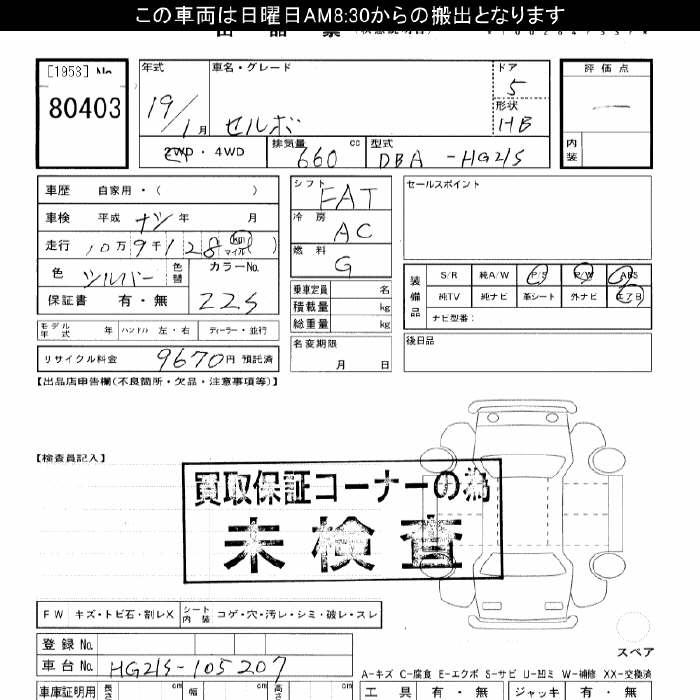 この車両は日曜日AM8:30からの搬出となります
[1953] No
80403
年式
19/1月
車名・グレード
セルボ
ドア
5
形状
HB
評価点
一
内装
2WD・4WD
排気量
660 cc
型式
DBA-HG21S
車歴 自家用・( )
車検 平成 ナシ 年 月
走行 10万9千128 km マイル ( )
色 シルバー 色替
カラーNo.
22S
保証書 有・無
モデル年式 年 ハンドル 左・右 ディーラー・並行
リサイクル料金 9670円 預託済
シフト
FAT
冷房
AC
燃料
G
乗車定員 名
積載量 kg
総重量 kg
名変期限
月 日
セールスポイント
装備品
S/R 純A/W P/S P/W ABS
純TV 純ナビ 革シート 外ナビ エアB
ナビ型番:
後日品
【出品店申告欄(不良箇所・欠品・注意事項等)】
【検査員記入】
買取保証コーナーの為
未検査
FW キズ・トビ石・割レX シート内装 コゲ・穴・汚レ・シミ・破レ・スレ
スペア
登録No.
車台No. HG21S-105207
A-キズ C-腐食 E-エクボ S-サビ U-凹ミ W-補修 XX-交換済
車庫証明用 長さ cm 幅 cm 高さ cm
工具 有・無 ジャッキ 有・無